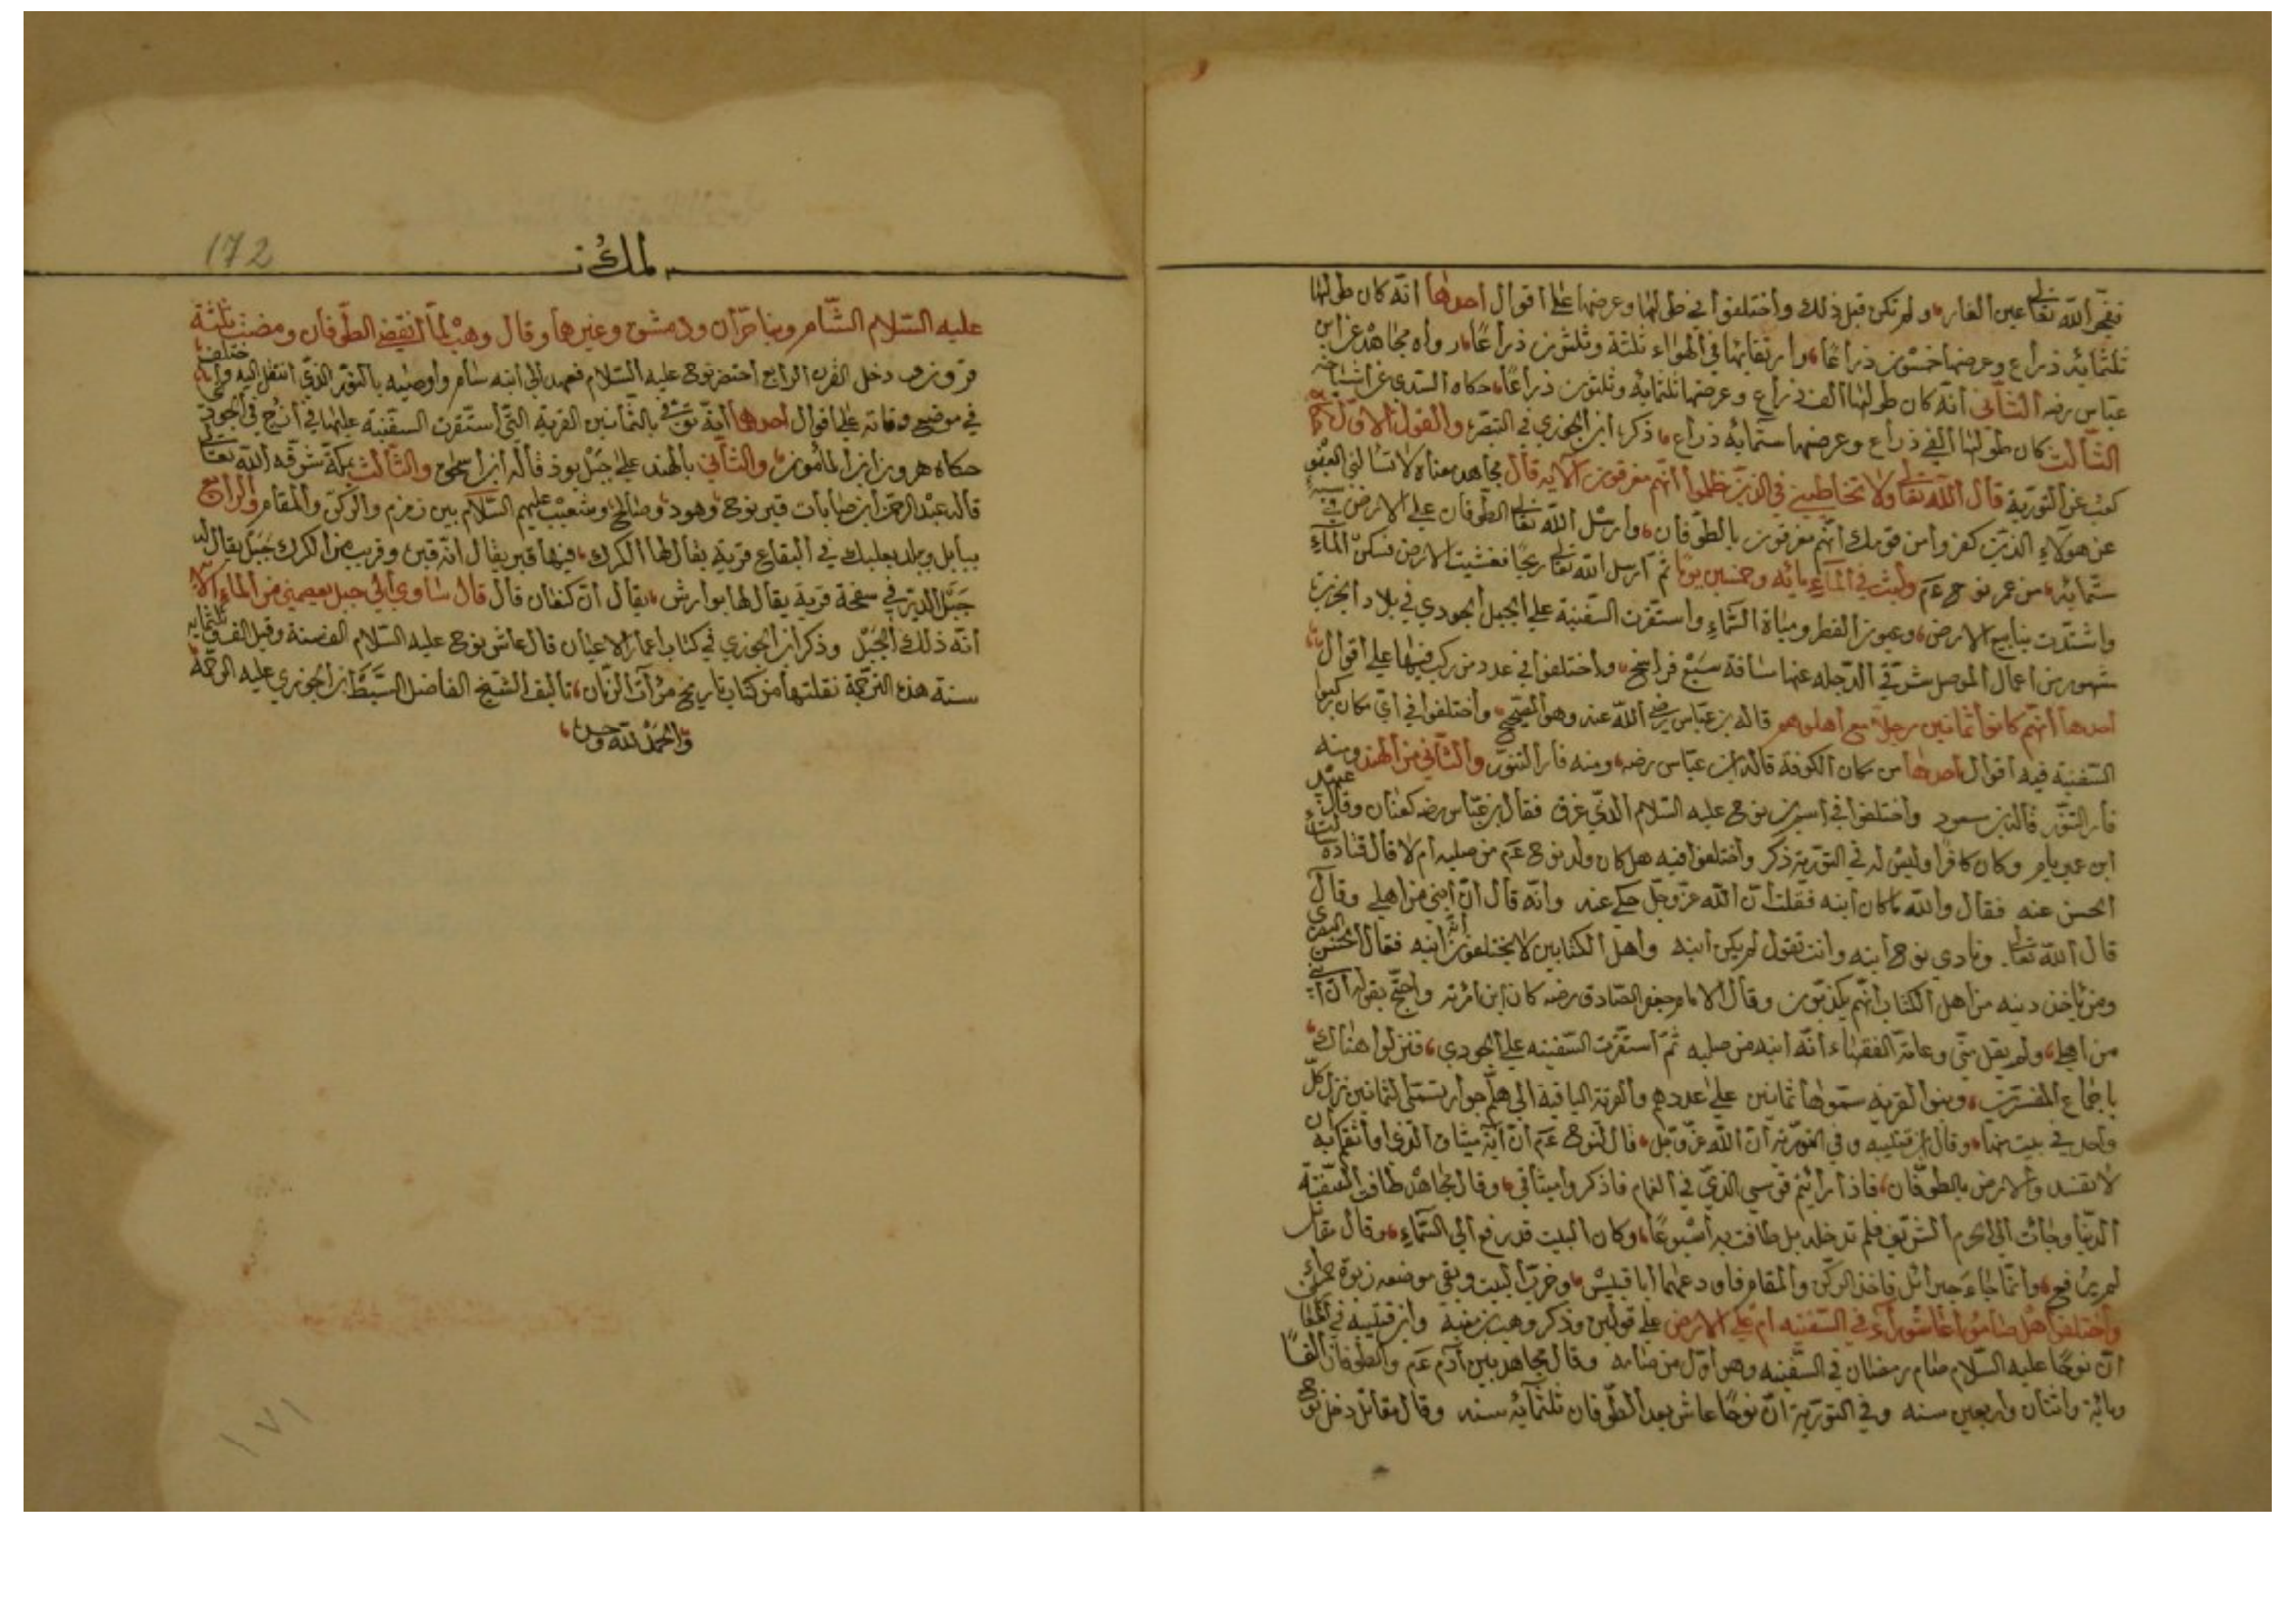 ففجر الله تعالى عين الغار ولم تكن قبل ذلك وأختلفوا في طولها وعرضها على أقوال أحدها أنّه كان طولها
ثلثمائة ذراع وعرضها خمسون ذراعًا وارتفاعها في الهواء ثلثة وثلثون ذراعًا رواه مجاهد عن ابن
عبّاس رضه الثاني أنّه كان طولها ألف ذراع وعرضها ثلثمائة وثلثون ذراعًا حكاه السّدي عن أشياخه
الثالث كان طولها ألفي ذراع وعرضها ستمائة ذراع ذكره ابن الجوزي في التبصرة والقول الاوّل
كعب عن التورية قال الله تعالى ولا تخاطبني في الذين ظلموا أنّهم مغرقون الآية قال مجاهد معناه لا تسالني العفو
عن هولاءِ الذين كفروا من قومك أنّهم مغرقون بالطوفان وأرسل الله تعالى الطوفان على الارض في سنة
ستمائة من عمر نوح عم ولبث في الماءِ مائة وخمسين يومًا ثم أرسل الله تعالى ريحًا فغشيت الارض فسكن الماءِ
واشتدّت ينابيع الارض وعيون القطر ومياة السّماءِ واستقرّت السّفينة على الجبل الجودي في بلاد الجزيرة
شهور من أعمال الموصل شرقي الدّجله عنها مسافة سَبْع فراسخ وأختلفوا في عدد من ركب فيها على أقوال
أحدها أنّهم كانوا ثمانين رجلا مع أهلوهم قاله بن عبّاس رضي الله عنه وهو الصّحيح وأختلفوا في أيّ مكان ركبوا
السّفينة فيه أقوال أحدها من مكان الكوفة قاله ابن عبّاس رضه ومنه فار التنّور والثّاني من الهند ومنه
فار التنّور قاله بن مسعود وأختلفوا في أسم بن نوح عليه السّلام الذّي غرق فقال بن عبّاس رضه كنعان وقال عبيد
ابن عمير يام وكان كافرًا وليس له في التورية ذكر وأختلفوا فيه هل كان ولد نوح عم من صلبه أم لا قال قتادة
الحسن عنه فقال والله ما كان أبنه فقلت أن الله عزّ وجلّ حكى عنه وأنّه قال أنّ أبني من أهلي وقال
قال الله تعالى ونادي نوح أبنه وأنت تقول لم يكن أبنه وأهل الكتابين لا يختلفون أنّه أبنه فقال الحسن البصري
ومن يأخذ دينه من أهل الكتاب أنّهم يكذبون وقال الامام جعفر الصّادق رضه كان ابن أمرته واحتجّ بقوله أنّ أبني
من أهلي ولم يقل منّي وعامّة الفقهاء أنّه أبنه من صلبه ثمّ أستقرّت السّفينه على الجودي فنزلوا هناك
بإجماع المفسّرين وبنوا القرية سمّوها ثمانين على عددهم والقرية الباقية الى هلّم جرا وتسمّى الثمانين نزل كلّ
واحد في بيت منها وقال بن قتيبه وفي التورية أنّ الله عزّ وجلّ قال لنوح عم أنّ آية ميثاقي الذي أواثقكم به أن
لا تفسد والارض بالطوفان فاذا رأيتم قوسي الذّي في الغمام فاذكروا ميثاقي وقال مجاهد طافت السّفينة
الدّنيا وجأت الى الحرم الشّريف فلم تدخله بل طافت به أسبوعًا وكان البيت قد رفع الى السّماءِ وقال مقاتل
لم يرفع وأنّما جاءَ جبرائل فاخذ الركن والمقام فاودعهما أبا قبيس وخرب البيت وبقي موضعه ربوة حمراءِ
وأختلفوا هل صاموا عاشوراء في السّفينه أم على الارض على قولين وذكر وهب بن منبه وابن قتيبه في المعارف
أنّ نوحًا عليه السّلام صام رمضان في السّفينه وهو أوّل من صامه وقال مجاهد بين آدم عم والطوفان ألفًا
ومائية واثنان وأربعين سنه وفي التورية أنّ نوحًا عاش بعد الطّوفان ثلثمائة سنه وقال مقاتل دخل نوح
لمك
172
عليه السّلام الشّام وبنا حرّان ودمشق وغيرها وقال وهب لمّا أنقضى الطّوفان ومضت ثلثة
قرون ودخل القرن الرابع أحتضر نوح عليه السّلام فعهد الى أبنه سام وأوصيه بالنّور الذّي أنتقل اليه وأختلفوا
في موضع وفاته على أقوال أحدها أنّه توفّى بالثّمانين القرية التّي أستقرت السّفينة عليها في أبرج في الجودي
حكاه هرون ابن المأمون والثّاني بالهند على جَبَل بوذ قاله أبن أسحق والثّالث بمكّة شرّفه الله تعالى
قاله عبد الرحمن أبن صابات قبر نوح وهود وصالح وشعيب عليهم السّلام بين زمزم والركن والمقام والرابع
ببابل وببلد بعلبك في البقاع قرية يقال لها الكرك فيها قبر يقال أنّه قبره وقريب من الكرك جَبَل يقال له
جَبَل الدير في سفحة قرية يقال لها بوارش يقال أنّ كنعان قال قال ساوي ألى جبل يعصمني من الماءِ الآية
أنّه ذلك الجبل وذكر أبن الجوزي في كتاب اعمار الاعيان قال عاش نوح عليه السّلام ألف سنة وقيل ألف وثلثمائة
سنة هذه الترجمة نقلتها من كتاب تاريخ مرآت الزمان تأليف الشّيخ الفاضل السّبط أبن الجوزي عليه الرحمة
والحمد لله وحده
١٧١